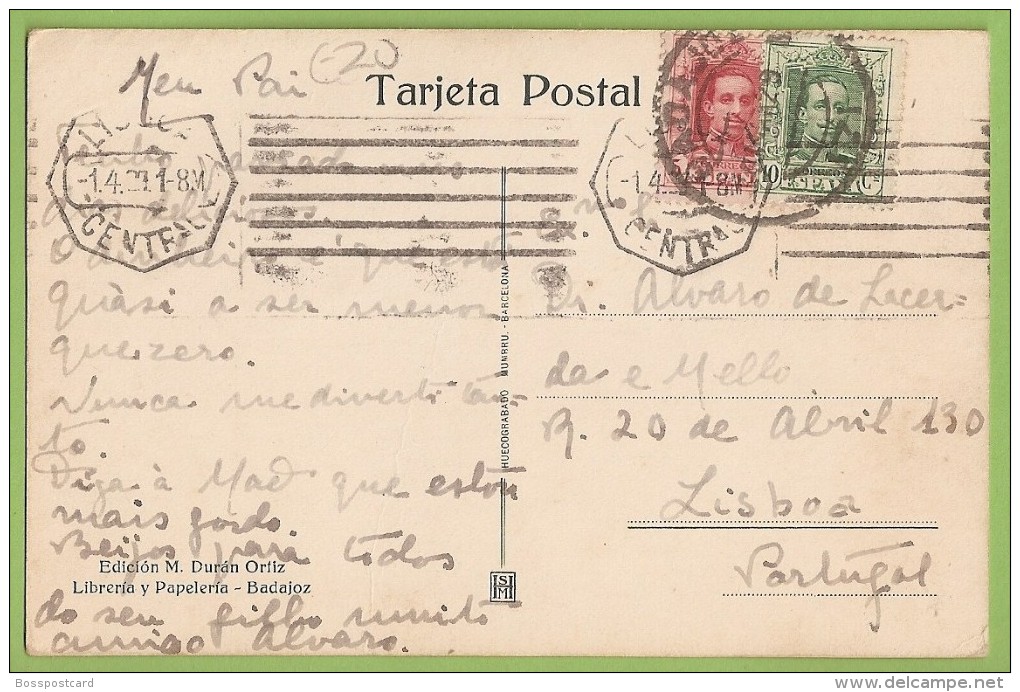 Meu Pai
Tarjeta Postal
CENTRAL
-1.4.
1-8M
CENTRAL
-1.4.
1-8M
CORREOS
10 Cs
Tenho passado uns
dias deliciosos.
O dinheiro é que está
quàsi a ser menor
que zero.
Nunca me diverti tan-
to.
Diga à Mãe que estou
mais gordo.
Beijos para todos
do seu filho muito
amigo Alvaro.
Edición M. Durán Ortiz
Librería y Papelería - Badajoz
HUECOGRABADO MUMBRU. - BARCELONA
Alvaro de Lacer=
da e Mello
R. 20 de Abril 130
Lisboa
Portugal
Bosspostcard
www.delcampe.net